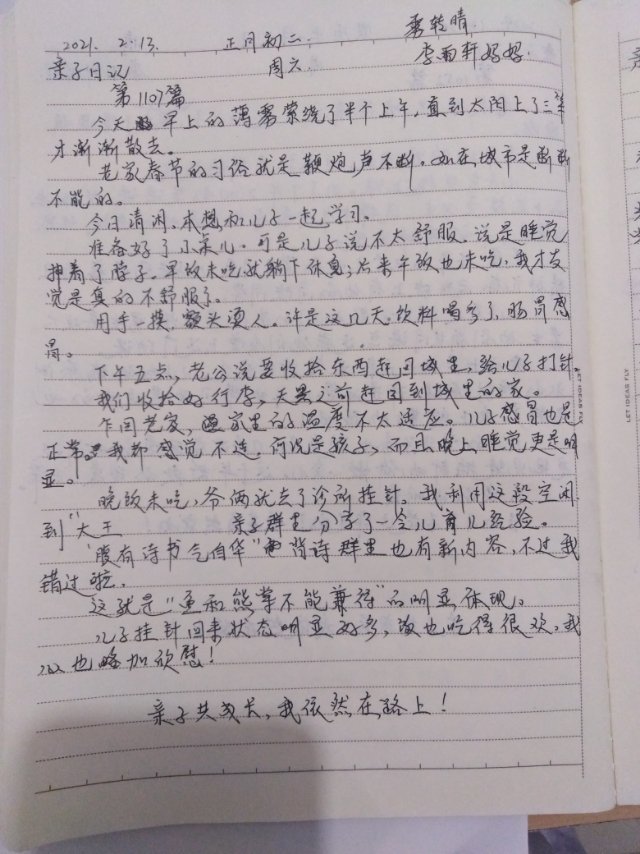 2021. 2.13. 正月初二 雾转晴
亲子日记 周六. 李雨轩妈妈
第1107篇
今天早上的薄雾萦绕了半个上午，直到太阳上了三竿
才渐渐散去。
老家春节的习俗就是鞭炮声不断，如在城市是断断
不能的。
今日清闲，本想和儿子一起学习。
准备好了小菜儿。可是儿子说不太舒服，说是睡觉
抻着了脖子，早饭未吃就躺下休息；后来午饭也未吃，我才发
觉是真的不舒服了。
用手一摸，额头烫人。许是这几天饮料喝多了，肠胃感
冒。
下午五点，老公说要收拾东西赶回城里，给儿子打针
我们收拾好行李，天黑之前赶回到城里的家。
乍回老家，家里的温度不太适应。儿子感冒也是
正常。我都感觉不适，何况是孩子，而且晚上睡觉更是明
显。
晚饭未吃，爷俩就去了诊所挂针。我利用这段空闲
到"大王 亲子群里分享了一会儿育儿经验。
"腹有诗书气自华"背诗群里也有新内容，不过我
错过啦。
这就是"鱼和熊掌不能兼得"的明显体现。
儿子挂针回来状态明显好多，饭也吃得很欢，我
心也略加欣慰！
亲子共成长，我依然在路上！
LET IDEAS FLY